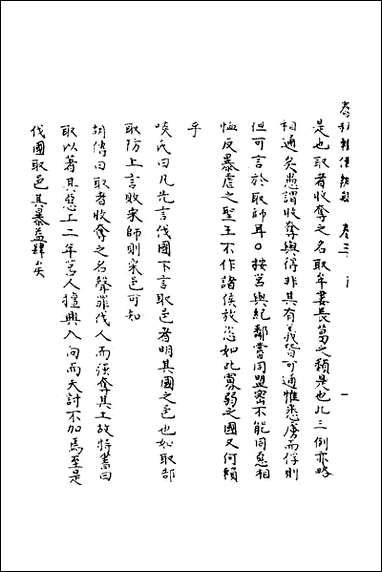 春秋辑传辨疑 卷三 一
是也取者收奪之名取牟婁長葛之類是也此三例亦略
相通矣愚謂收奪與得非其有義皆可通惟悉虜而俘則
但可言於取師耳〇按莒與紀鄰嘗同盟密不能同惡相
恤反暴虐之聖王不作諸侯放恣如此寡弱之國又何賴
乎
啖氏曰凡先言伐國下言取邑者明其國之邑也如取郜
取防上言敗宋師則宋邑可知
胡傳曰取者收奪之名聲罪伐人而强奪其土故特書曰
取以著其惡上二年莒人擅興入向而天討不加焉至是
伐國取邑其暴益肆矣